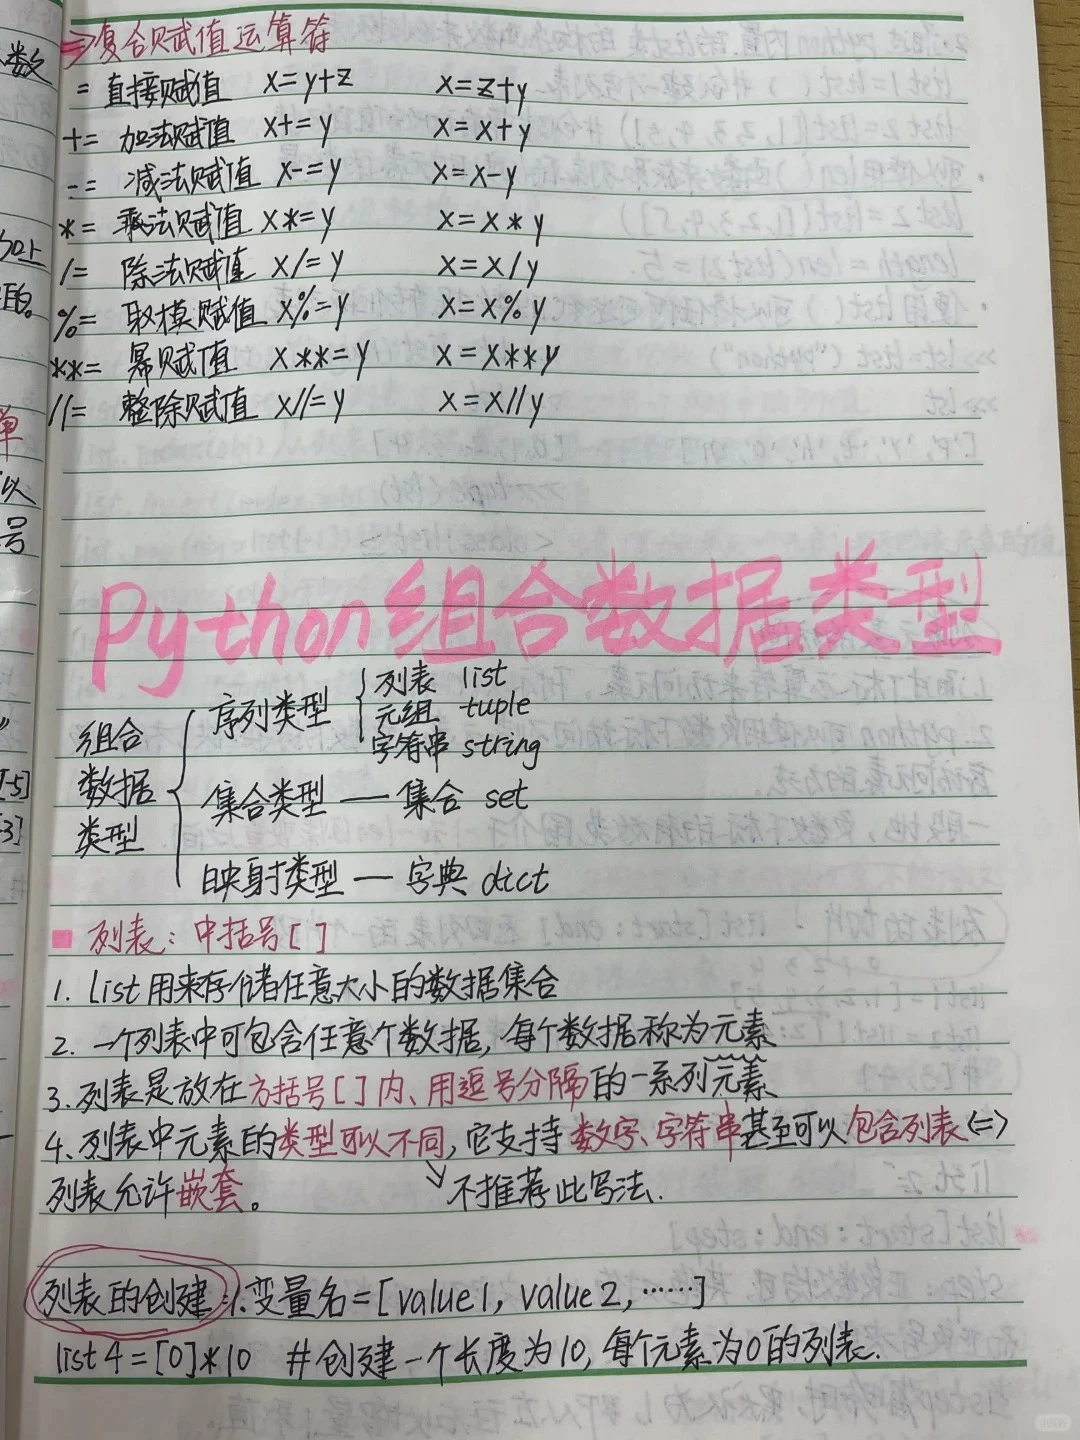 ⇒复合赋值运算符
= 直接赋值 x=y+z x=z+y
+= 加法赋值 x+=y x=x+y
-= 减法赋值 x-=y x=x-y
*= 乘法赋值 x*=y x=x*y
/= 除法赋值 x/=y x=x/y
%= 取模赋值 x%=y x=x%y
**= 幂赋值 x**=y x=x**y
//= 整除赋值 x//=y x=x//y
Python组合数据类型
组合数据类型
序列类型
列表 list
元组 tuple
字符串 string
集合类型 — 集合 set
映射类型 — 字典 dict
列表：中括号[ ]
1. List用来存储任意大小的数据集合
2. 一个列表中可包含任意个数据，每个数据称为元素
3. 列表是放在方括号[ ]内、用逗号分隔的一系列元素
4. 列表中元素的类型可以不同，它支持数字、字符串甚至可以包含列表<=>
列表允许嵌套。 不推荐此写法.
列表的创建：1.变量名=[value1, value2, ……]
list4=[0]*10 #创建一个长度为10,每个元素为0的列表.
数
的。
单
以
号
[-5]
3]